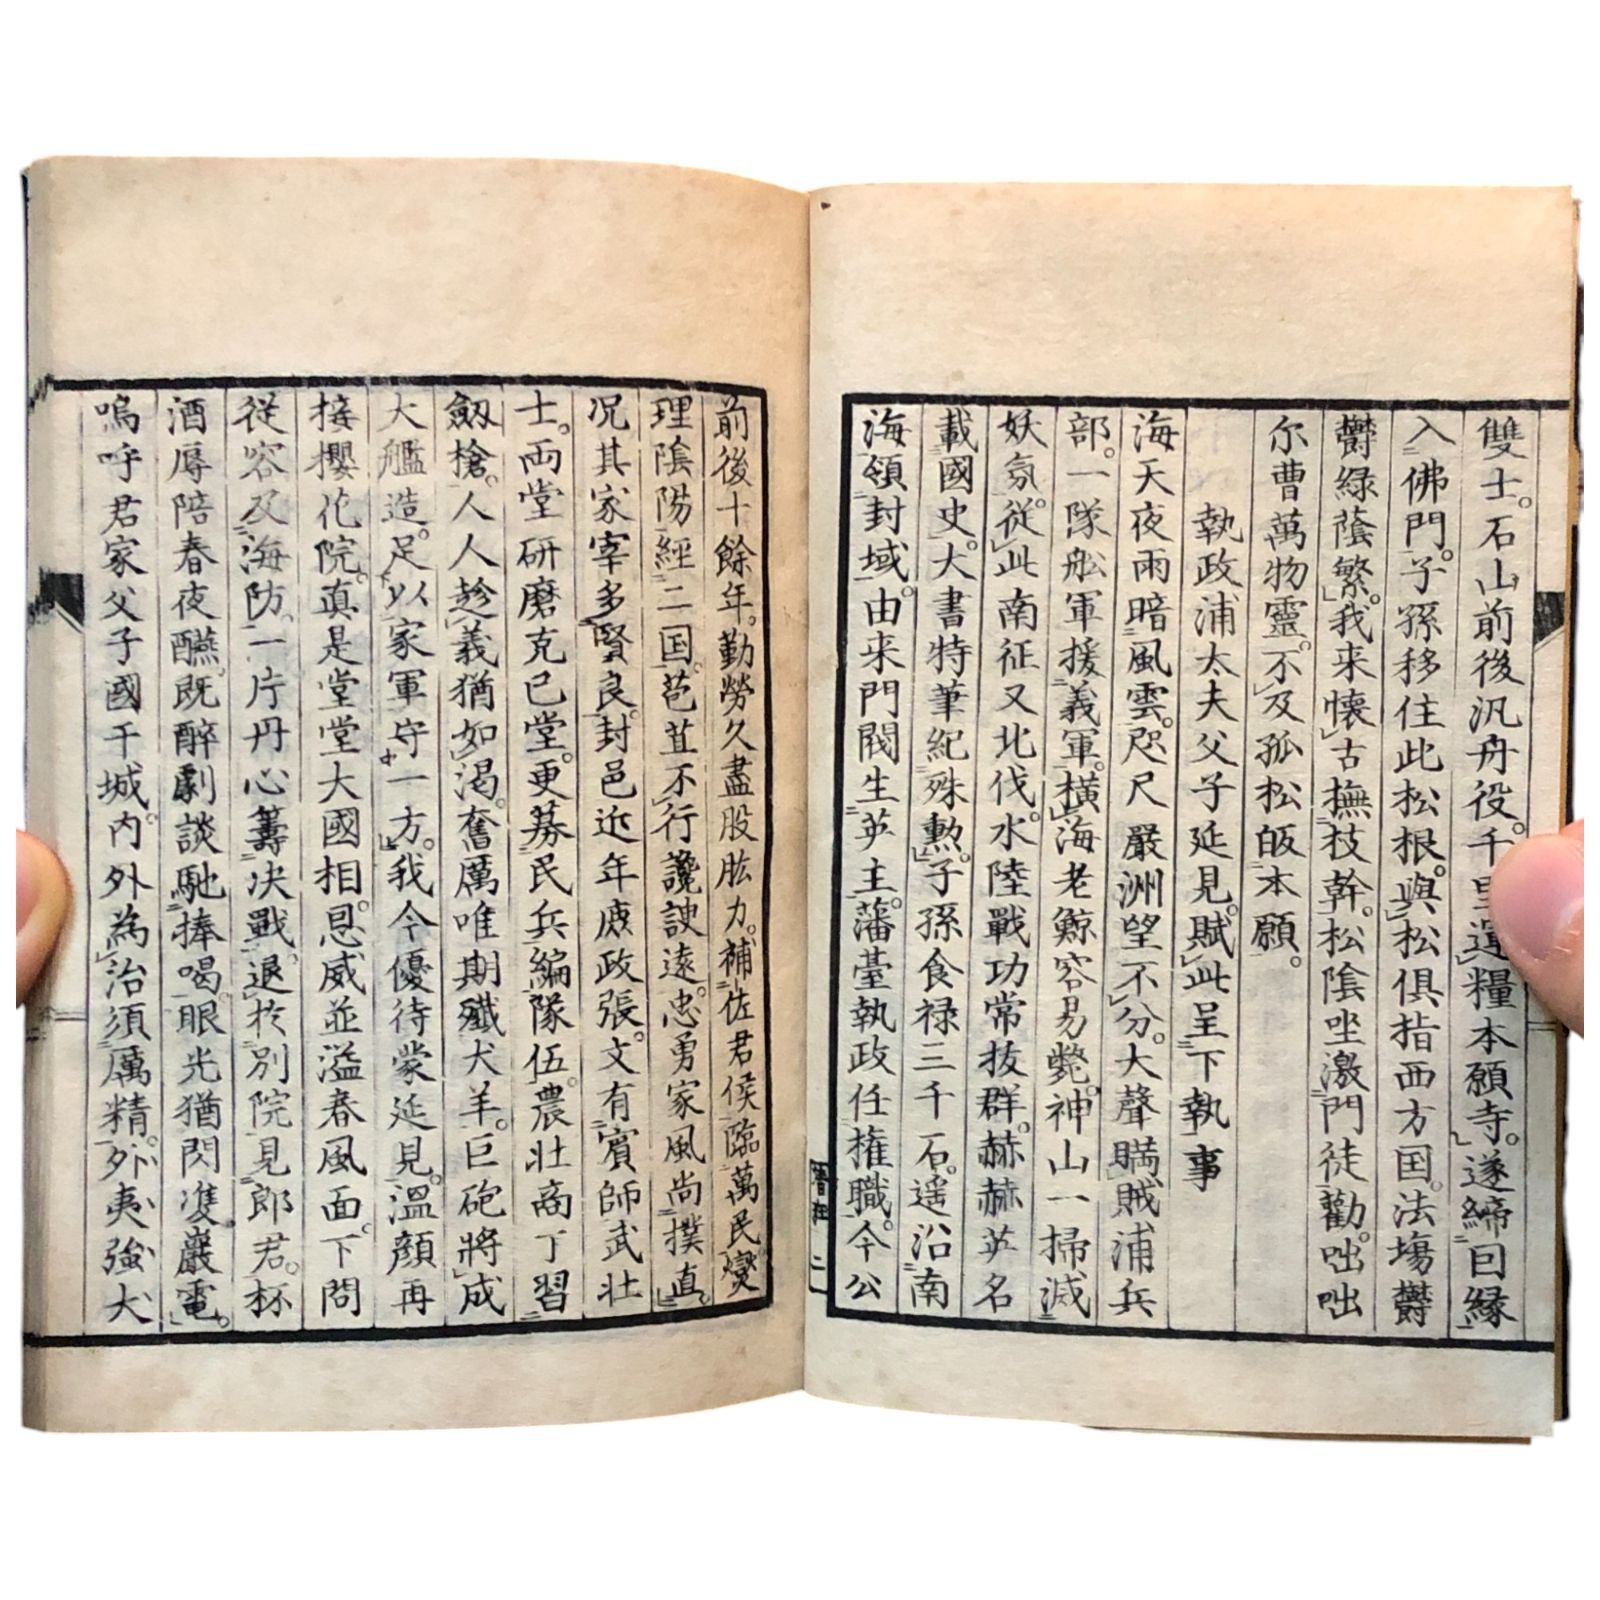 雙士。石山前後汎舟役。千里運糧本願寺。遂締因縁
入佛門。子孫移住此松根。與松倶指西方国。法塲欝
欝緑蔭繁。我来懷古撫枝幹。松陰坐激門徒勸。咄咄
尓曹萬物靈。不及孤松皈本願。
執政浦太夫父子延見。賦此呈下執事
海天夜雨暗風雲。咫尺嚴洲望不分。大聲購賊浦兵
部。一隊舩軍援義軍。横海老鯨容易斃。神山一掃滅
妖氛。從此南征又北伐。水陸戰功常抜群。赫赫英名
載國史。大書特筆紀殊勲。子孫食禄三千石。遥沿南
海領封域。由来門閥生英主。藩臺執政任権職。今公
前後十餘年。勤勞久盡股肱力。補佐君侯臨萬民。燮
理陰陽經二国。苞苴不行讒諛遠。忠勇家風尚撲直。
况其家宰多賢良。封邑近年庶政張。文有賓師武壮
士。両堂研磨克已堂。更募民兵編隊伍。農壮商丁習
劔槍。人人趁義猶如渇。奮厲唯期殲犬羊。巨砲將成
大艦造。足以家軍守一方。我今優待蒙延見。溫顔再
接櫻花院。真是堂堂大國相。恩威並溢春風面。下問
従容及海防。一片丹心籌决戰。退於別院見郎君。杯
酒辱陪春夜醼。既醉劇談馳捧喝。眼光猶閃雙巖電。
嗚呼君家父子國干城。内外為治須厲精。外夷強犬